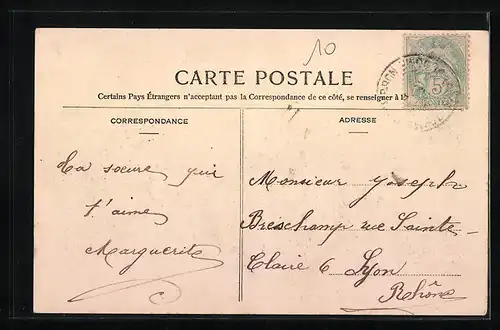 10
CARTE POSTALE
Certains Pays Étrangers n'acceptant pas la Correspondance de ce côté, se renseigner à
CORRESPONDANCE
ADRESSE
La soeur qui
t'aime
Marguerite
Monsieur Joseph
Breischamp rue Sainte
Claire 6 Lyon
Rhône
5